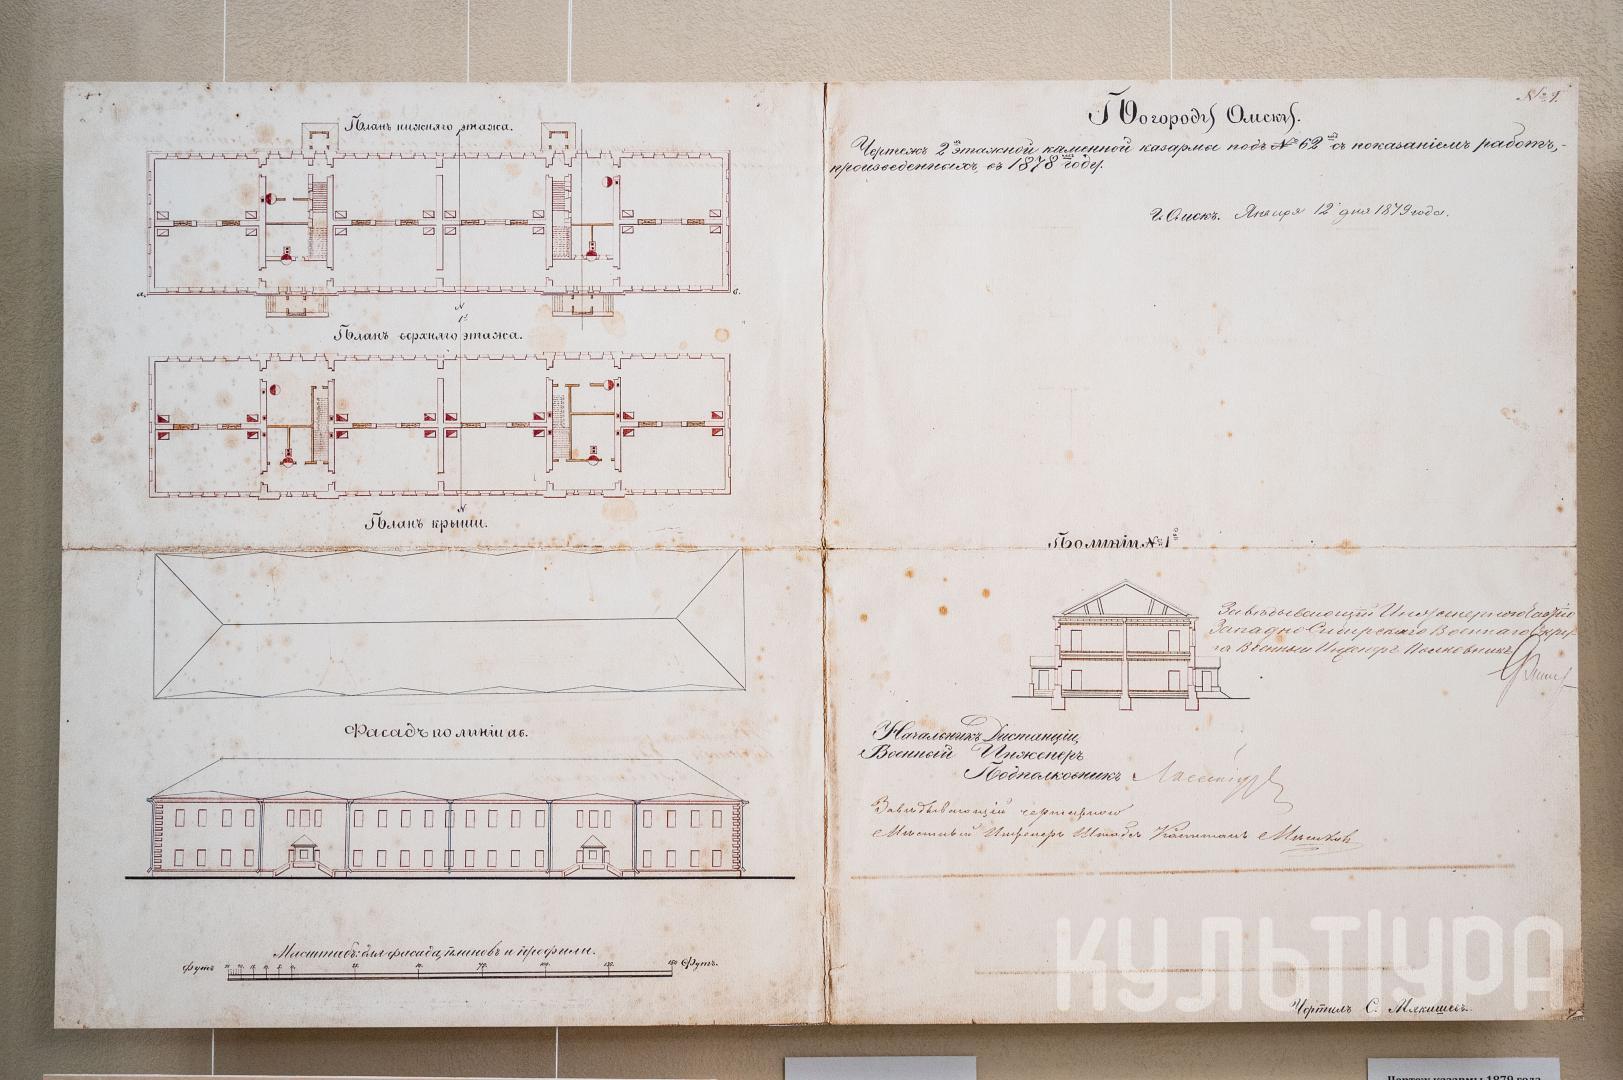 № 1.
По городу Омску.
Чертежъ 2хъ этажной каменной казармы подъ № 62мъ съ показаніемъ работъ,-
произведенныхъ въ 1878мъ году.
г. Омскъ. Января 12 дня 1879 года.
Планъ нижняго этажа.
а.
в.
N
1й
Планъ верхняго этажа.
N
Планъ крыши.
По линіи № 1й
Завѣдывающій Инженерною частію
Западно Сибирскаго Военнаго Окру-
га Военный Инженеръ Полковникъ
Фасадъ по линіи ав.
Начальникъ Дистанціи,
Военный Инженеръ
Подполковникъ
Завѣдывающій чертежною
Мѣстный Инженеръ Штабсъ Капитанъ
Масштабъ для фасада, плановъ и профили.
Футъ
Футъ.
КУЛЬТУРА
Чертилъ С. Мякишевъ.
Чертеж казармы 1879 года